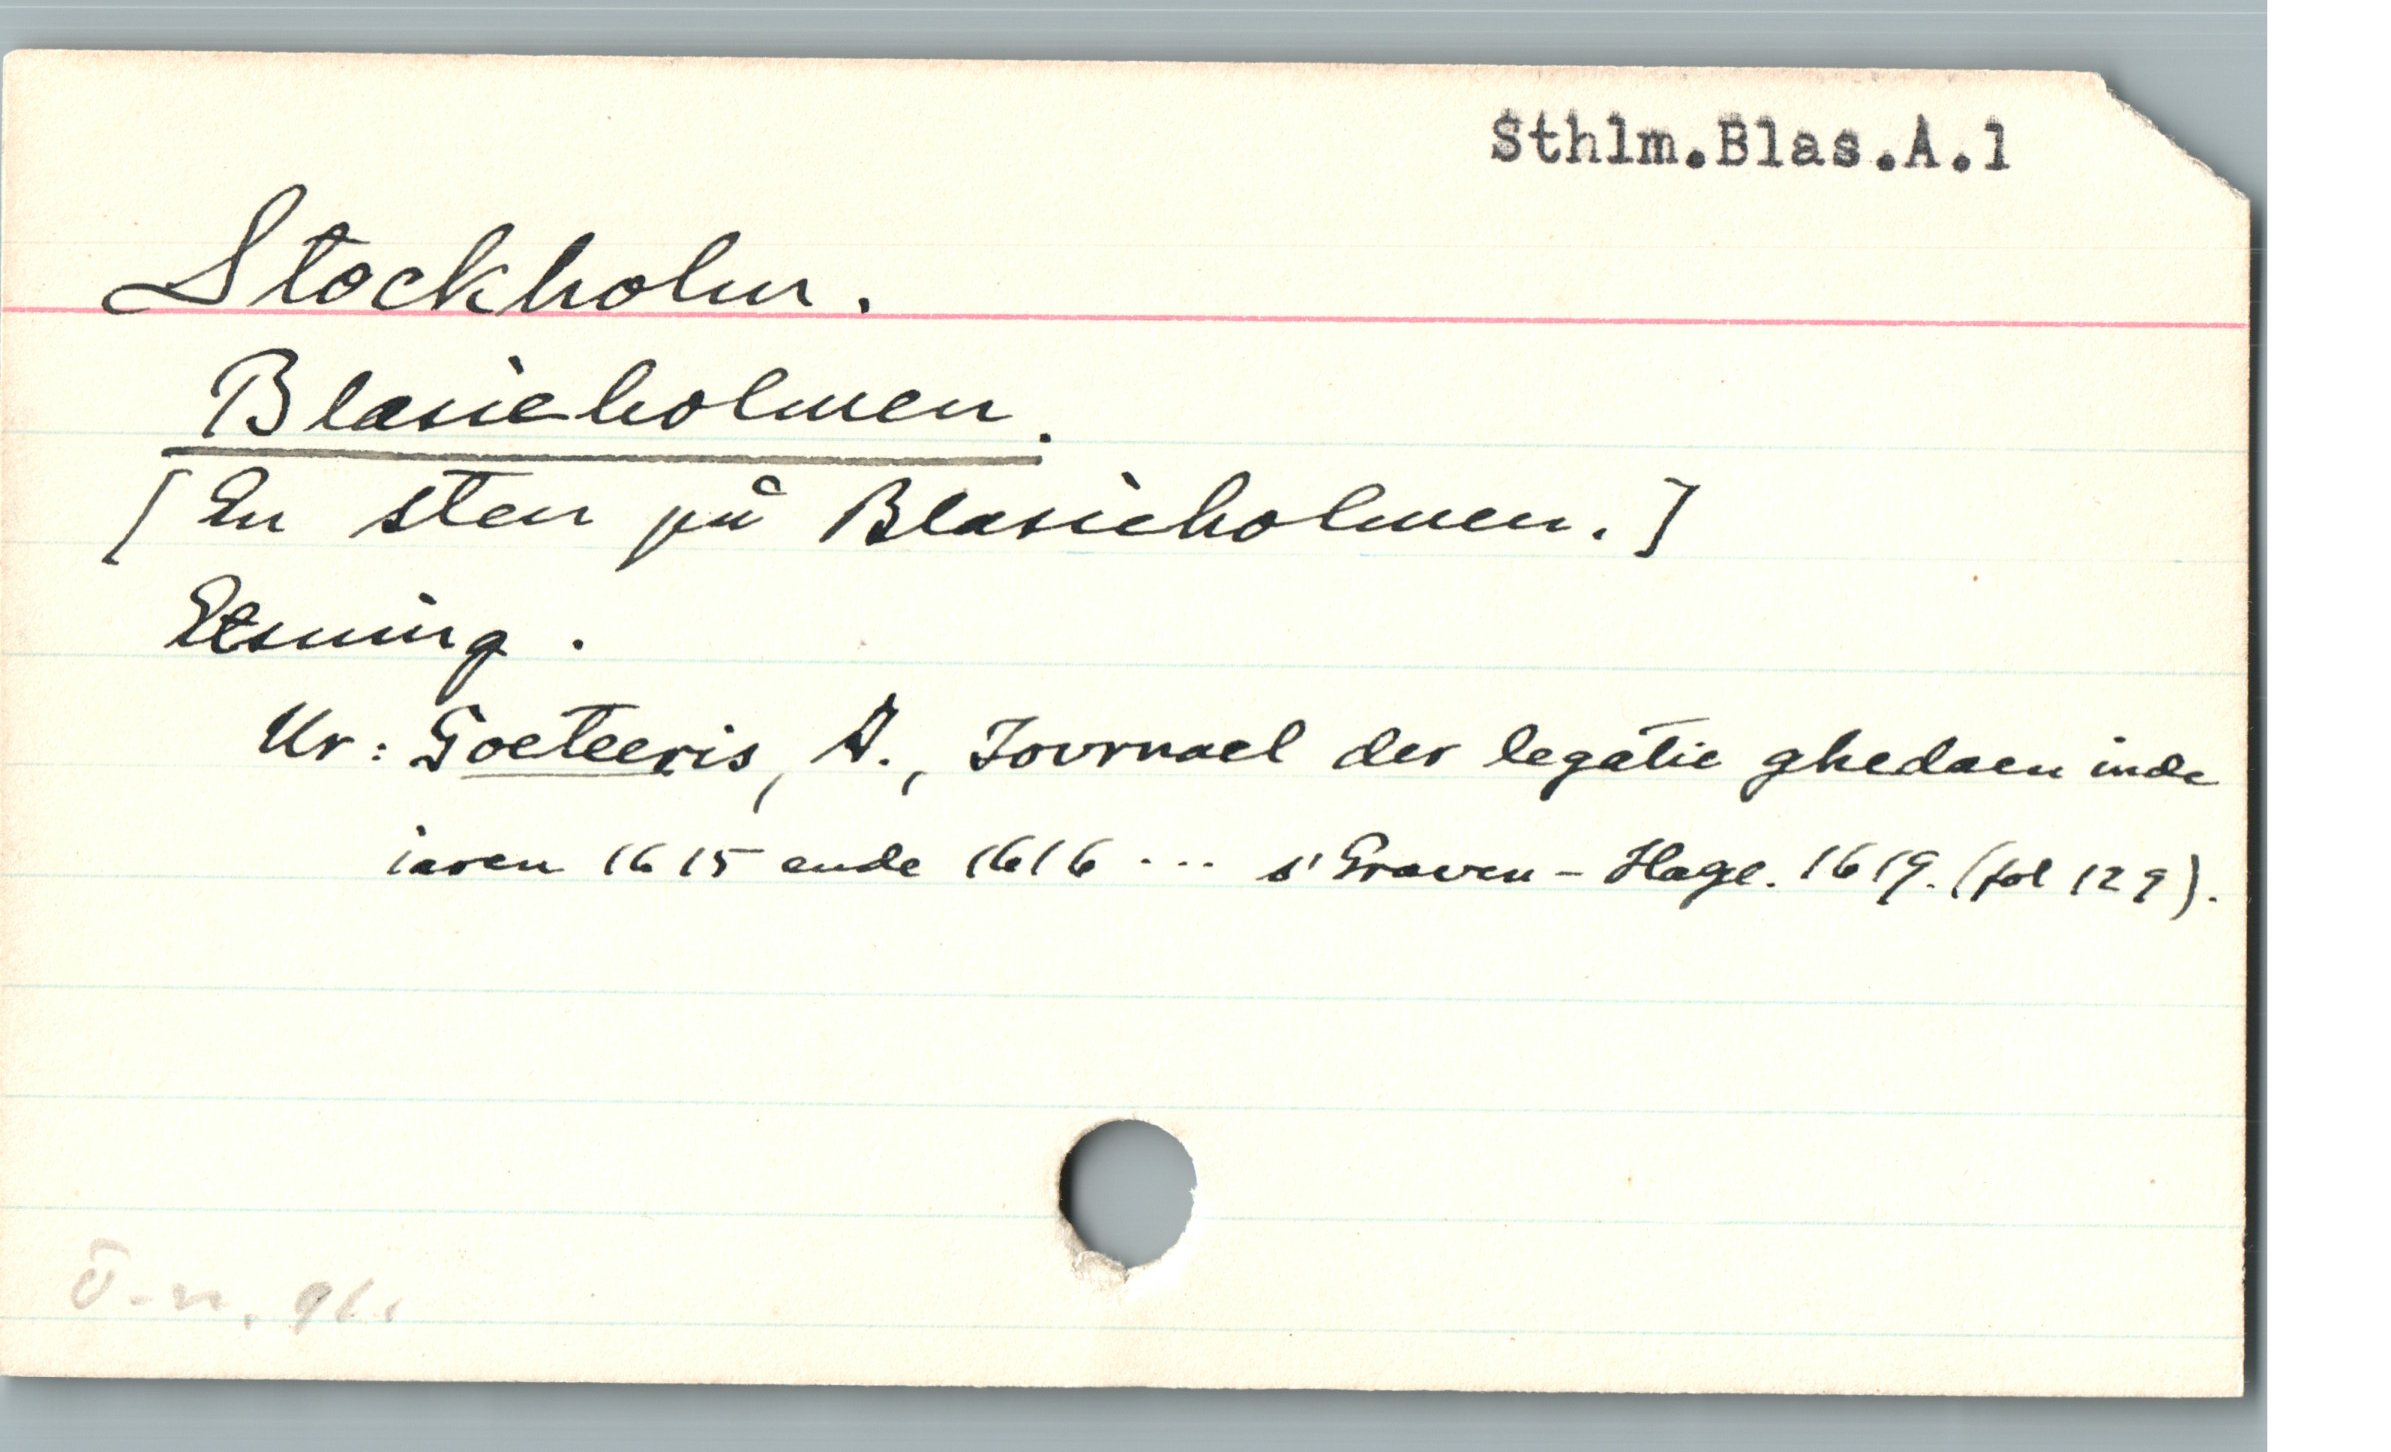 Sthlm.Blas.A.1
Stockholm.
Blasieholmen.
[En sten på Blasieholmen.]
Etsning.
Ur: Goeteeris, A., Iovrnael der legatie ghedaen inde
iaren 1615 ende 1616 ... s'Graven-Hage. 1619. (fol 129).